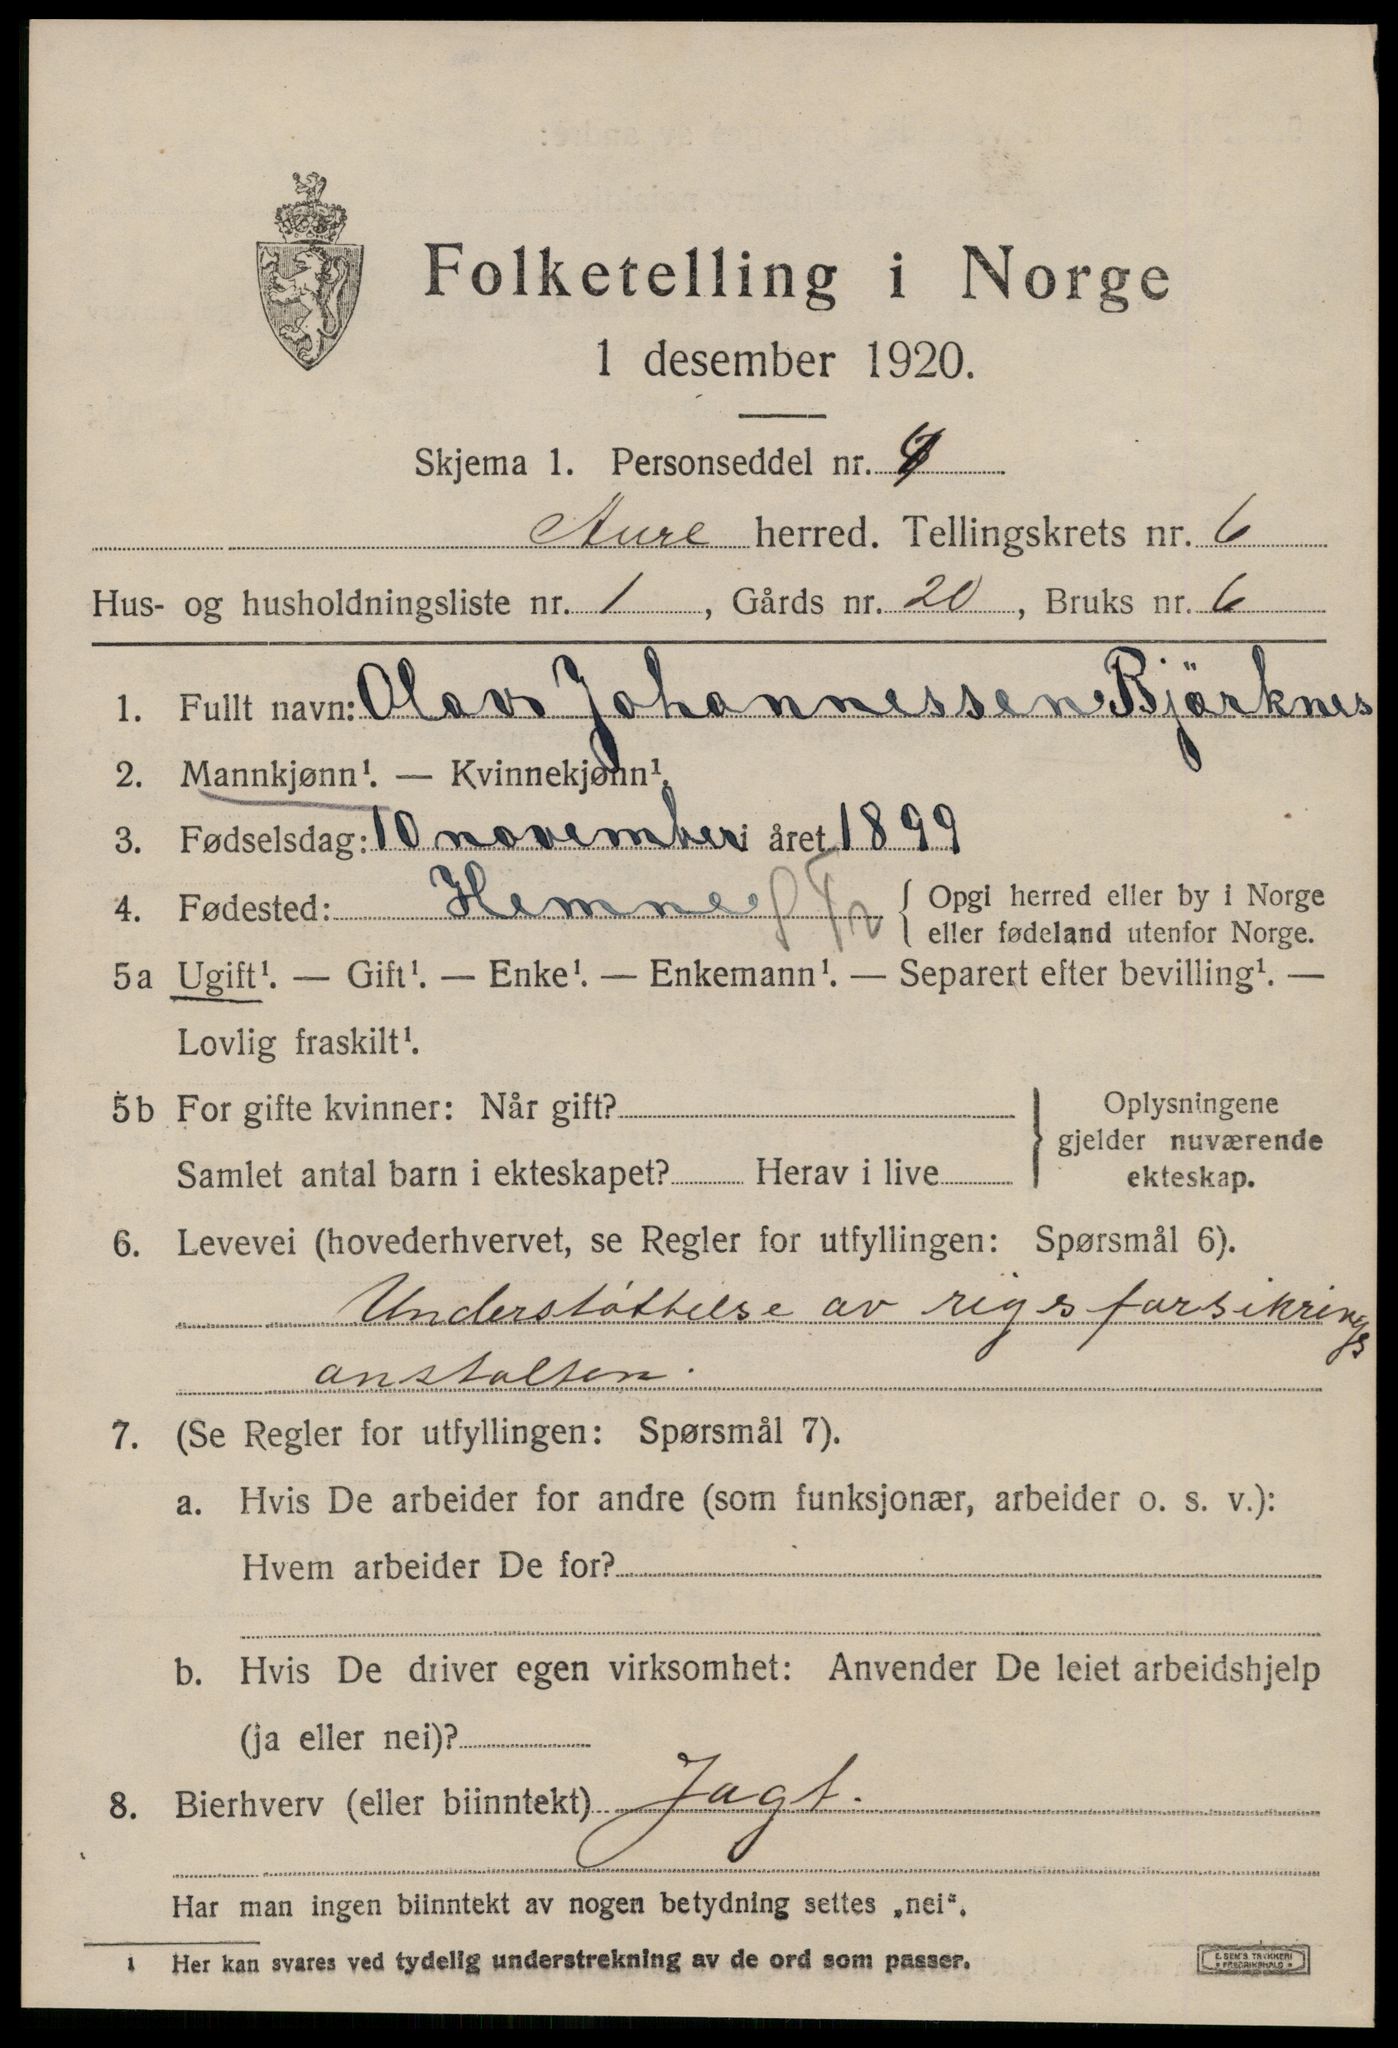 Folketelling i Norge
1 desember 1920.
Skjema 1. Personseddel nr.
Aure herred. Tellingskrets nr. 6
Hus- og husholdningsliste nr. 1, Gårds nr. 20, Bruks nr. 6
1. Fullt navn: Olav Johannessen Björknes
2. Mannkjønn¹. — Kvinnekjønn¹.
3. Fødselsdag: 10 november i året 1899
4. Fødested: Hemne { Opgi herred eller by i Norge
eller fødeland utenfor Norge.
5a Ugift¹. — Gift¹. — Enke¹. — Enkemann¹. — Separert efter bevilling¹. —
Lovlig fraskilt¹.
5b For gifte kvinner: Når gift?
Samlet antal barn i ekteskapet? Herav i live
} Oplysningene
gjelder nuværende
ekteskap.
6. Levevei (hovederhvervet, se Regler for utfyllingen: Spørsmål 6).
Understøttelse av rigsforsikrings
anstalten.
7. (Se Regler for utfyllingen: Spørsmål 7).
a. Hvis De arbeider for andre (som funksjonær, arbeider o. s. v.):
Hvem arbeider De for?
b. Hvis De driver egen virksomhet: Anvender De leiet arbeidshjelp
(ja eller nei)?
8. Bierhverv (eller biinntekt) Jagt.
Har man ingen biinntekt av nogen betydning settes „nei“.
1 Her kan svares ved tydelig understrekning av de ord som passer.
E. SEM'S TRYKKERI
FREDRIKSHALD